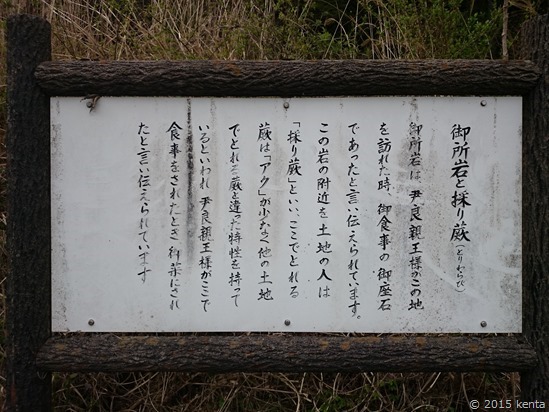 御所岩と採り蕨(とりわらび)
御所岩は、尹良親王様がこの地
を訪れた時、御食事の御座石
であったと言い伝えられています。
この岩の附近を土地の人は
「採り蕨」といい、ここでとれる
蕨は「アク」が少なく他の土地
でとれる蕨と違った特性を持って
いるといわれ尹良親王様がここで
食事をされたとき御菜にされ
たと言い伝えられています
© 2015 kenta